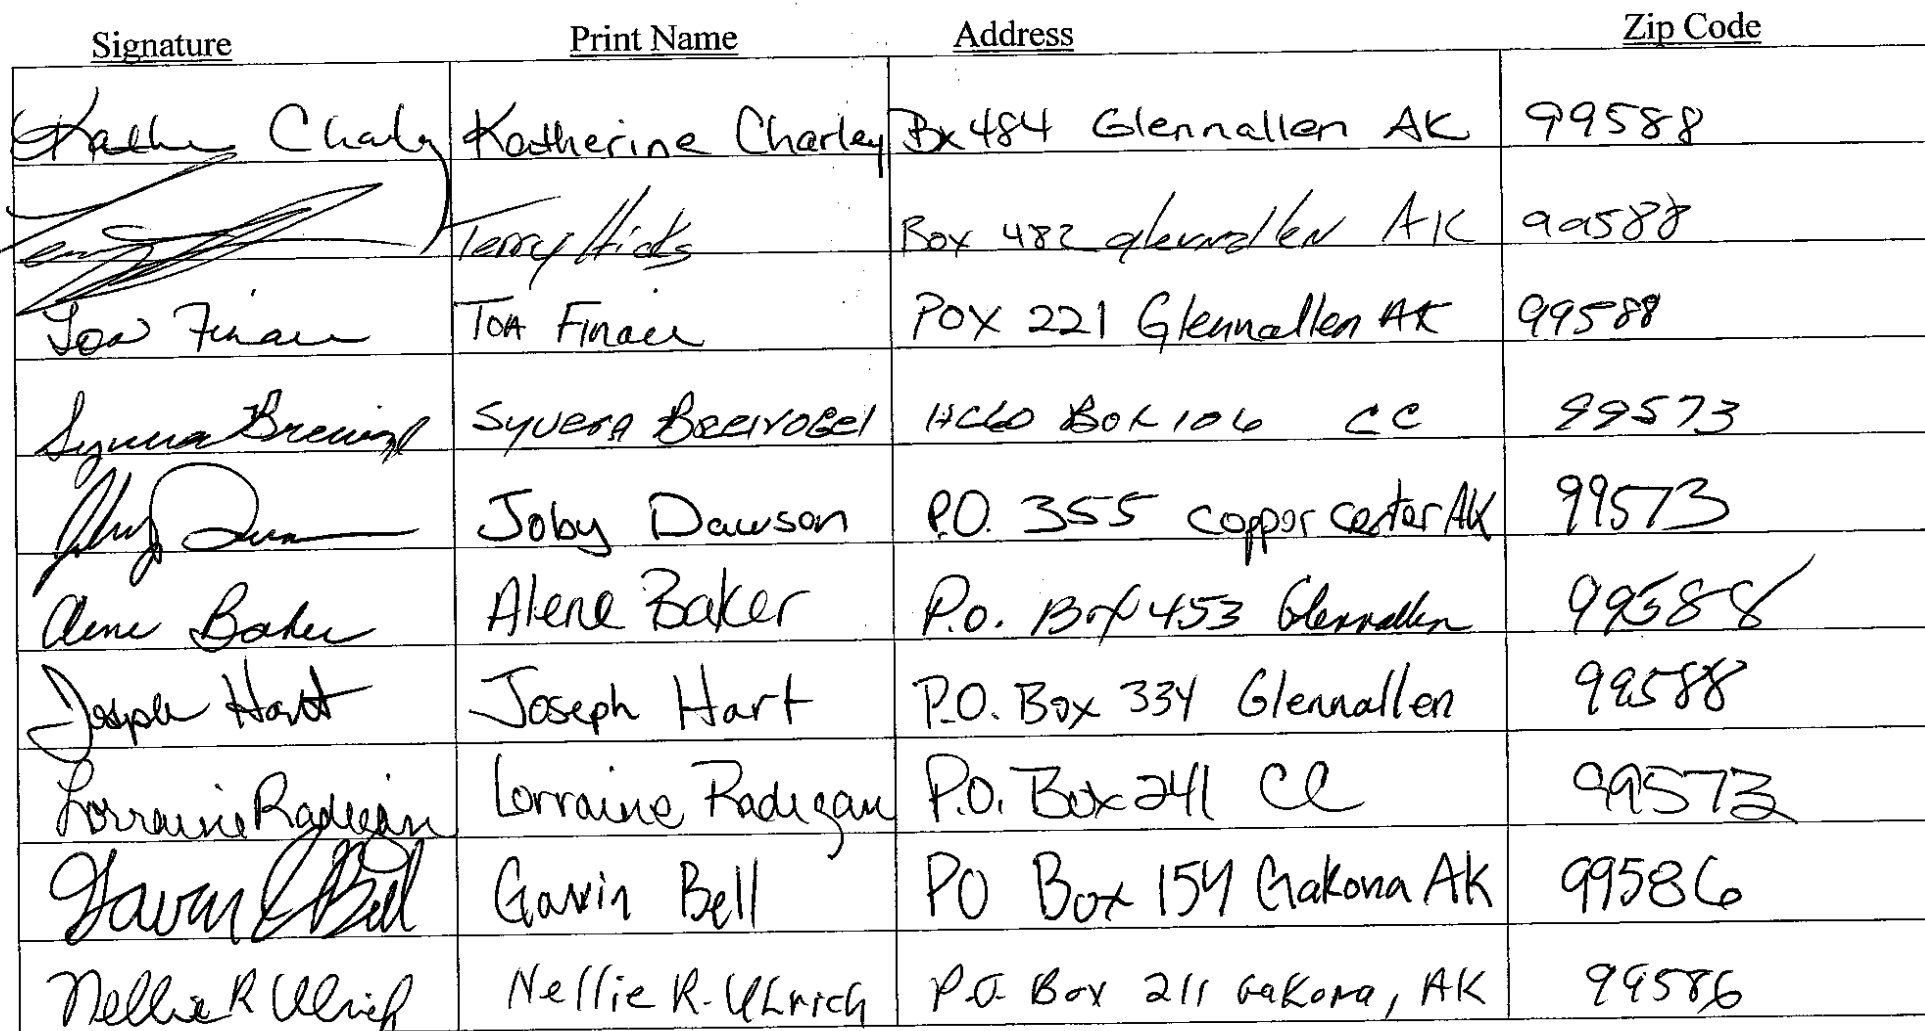 Signature Print Name Address Zip Code
Kathe Charley Katherine Charley Bx 484 Glennallen AK 99588
Terry Terry Hicks Box 482 glennallen AK 99588
Toa Finau TOA Finau POX 221 Glennallen AK 99588
Syvera Breivogel Syvera Breivogel HC60 Box 106 CC 99573
Joby Dawson Joby Dawson P.O. 355 coppor center AK 99573
Alene Baker Alene Baker P.O. Box 453 Glennallen 99588
Joseph Hart Joseph Hart P.O. Box 334 Glennallen 99588
Lorraine Radigan Lorraine Radigan P.O. Box 241 CC 99573
Gavin Bell Gavin Bell PO Box 154 Gakona AK 99586
Nellie R Ulrich Nellie R. Ulhrich P.O. Box 211 Gakona, AK 99586